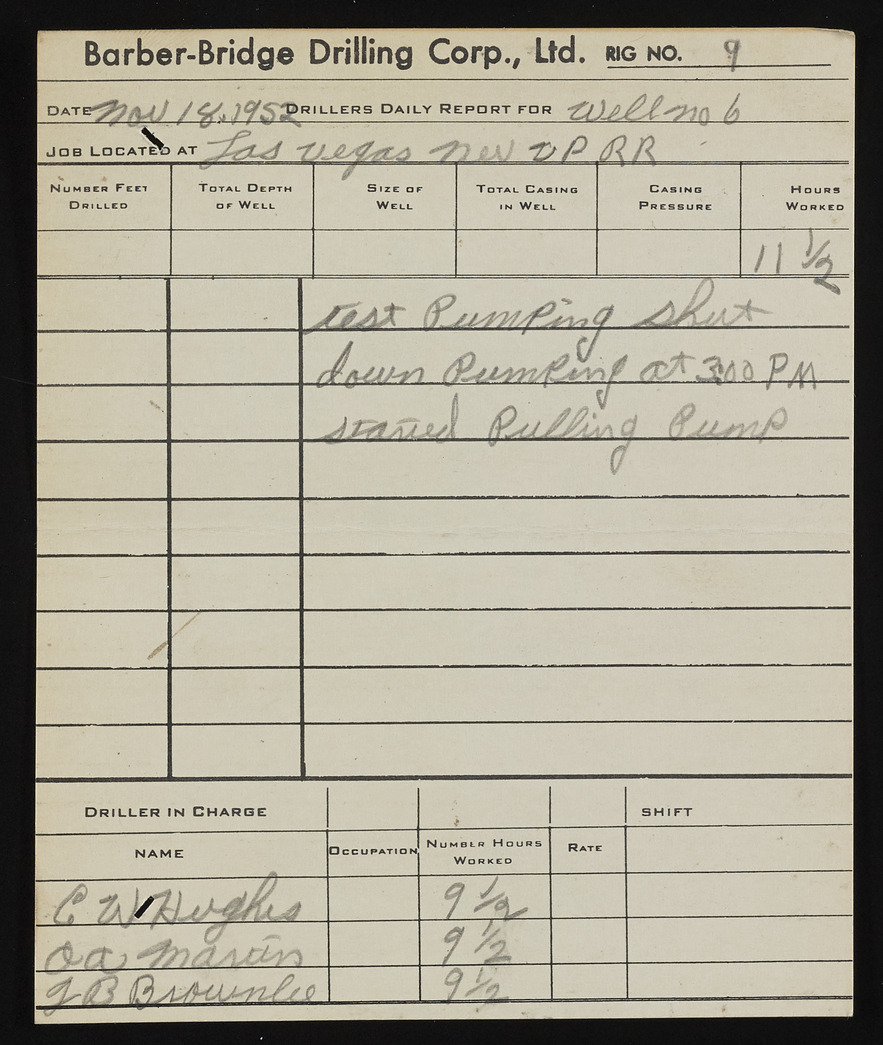 Barber-Bridge Drilling Corp., Ltd. RIG NO. 9
DATE Nov 18, 1952 DRILLERS DAILY REPORT FOR Well no 6
JOB LOCATED AT Las Vegas Nev UP RR
NUMBER FEET DRILLED TOTAL DEPTH OF WELL SIZE OF WELL TOTAL CASING IN WELL CASING PRESSURE HOURS WORKED
11 1/2
test Pumping shut
down Pumping at 3:00 PM
started Pulling Pump
DRILLER IN CHARGE SHIFT
NAME OCCUPATION NUMBER HOURS WORKED RATE
C W Hughes 9 1/2
Oa Martin 9 1/2
J B Brownlee 9 1/2